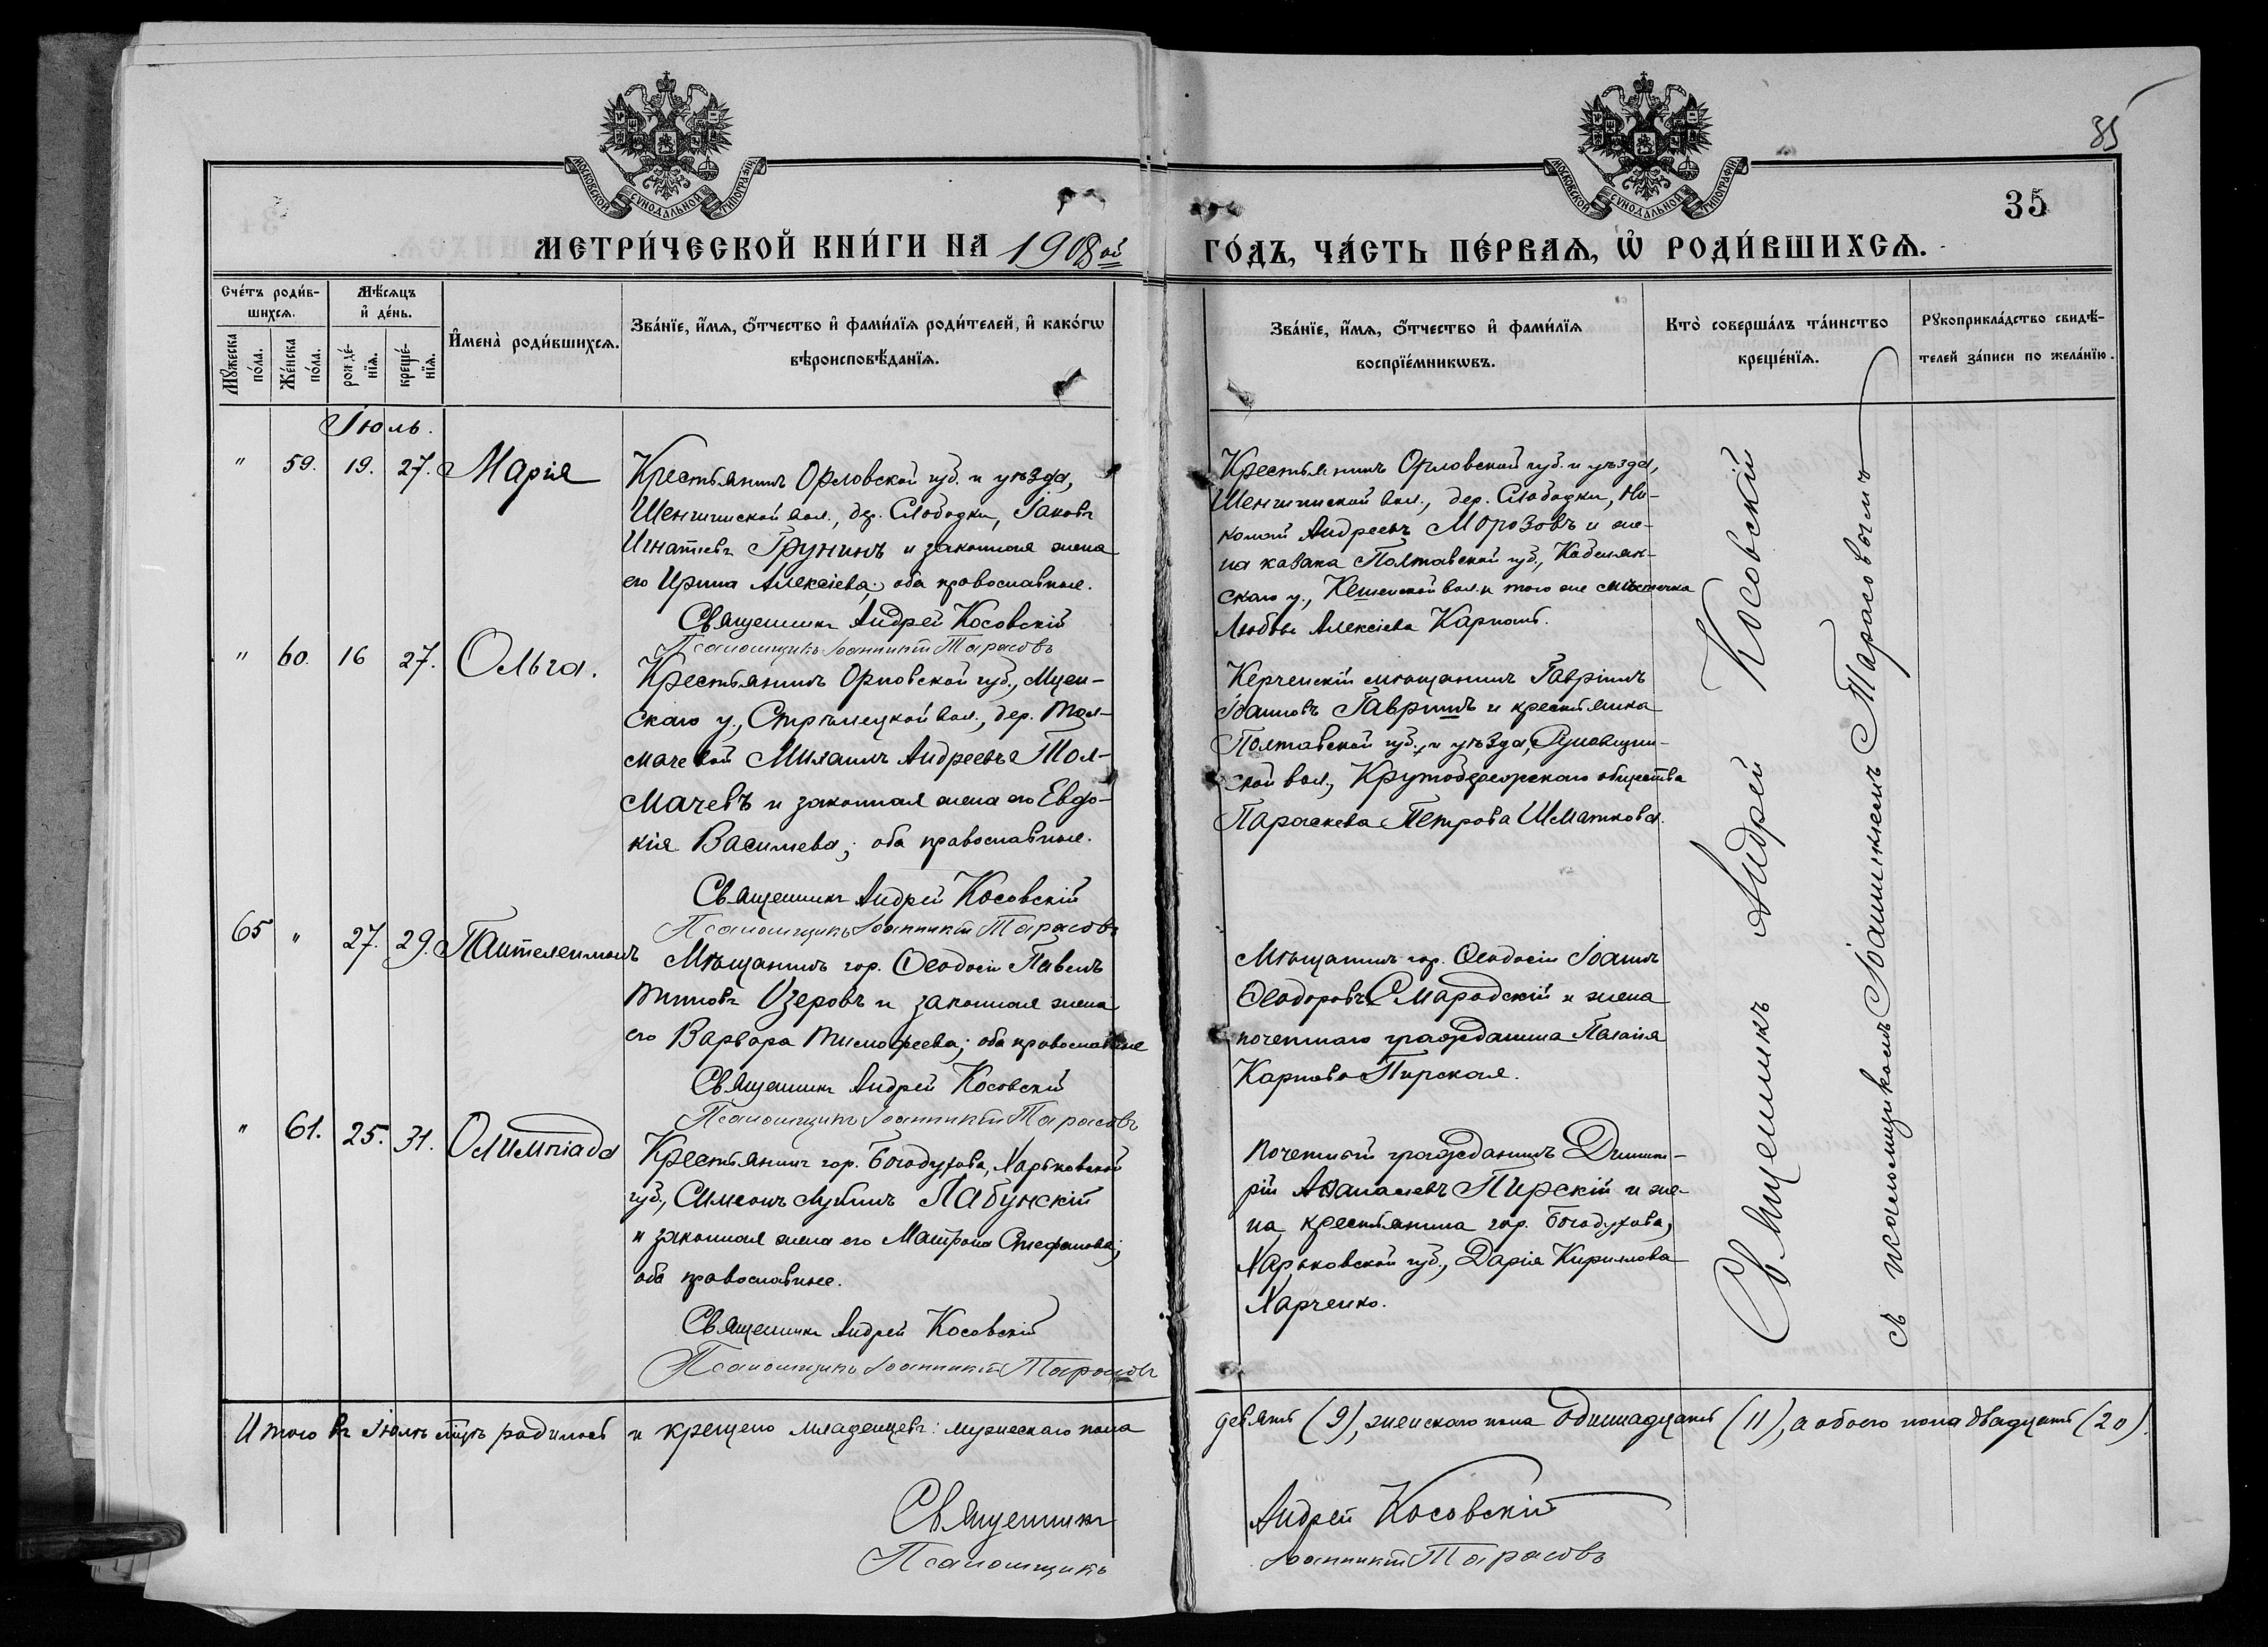 МОСКОВСКОЙ СѴНОДАЛЬНОЙ ТИПОГРАФІИ
МОСКОВСКОЙ СѴНОДАЛЬНОЙ ТИПОГРАФІИ
35
35
МЕТРИ́ЧЕСКОЙ КНИ́ГИ НА 1908ой
ГО́ДЪ, ЧА́СТЬ ПЕ́РВАѦ, Ѽ РОДИ́ВШИХСѦ.
Сче́тъ роди́в-
шихсѧ.
Мꙋжеска
по́ла.
Же́нска
по́ла.
Мѣ́сѧцъ
и҆ де́нь.
рожде́-
нїѧ.
креще́-
нїѧ.
И҆мена̀ роди́вшихсѧ.
Зва́нїе, и҆́мѧ, ѻ҆́тчество и҆ фами́лїѧ роди́телей, и҆ како́гѡ
вѣроисповѣ́данїѧ.
Зва́нїе, и҆́мѧ, ѻ҆́тчество и҆ фами́лїѧ
воспрїе́мникѡвъ.
Кто̀ соверша́лъ та́инство
креще́нїѧ.
Рꙋкоприкла́дство свидѣ́-
телей за́писи по жела́нїю.
Іюль.
" 59. 19. 27. Марія
Крестьянинъ Орловской губ. и уѣзда,
Шеншинской вол., дер. Слободки, Іаковъ
Игнатіевъ Грунинъ и законная жена
его Ирина Алексіева; оба православные.
Священникъ Андрей Косовскій
Псаломщикъ Іоанникій Тарасовъ
Крестьянинъ Орловской губ. и уѣзда,
Шеншинской вол., дер. Слободки, Ни-
колай Андреевъ Морозовъ и же-
на козака Полтавской губ., Кобеляк-
скаго у., вол. и того же мѣстечка
Любовь Алексіева Карпотъ.
" 60. 16 27. Ольга.
Крестьянинъ Орловской губ., Мцен-
скаго у., Стрѣлецкой вол., дер. Тол-
мачевой Михаилъ Андреевъ Тол-
мачевъ и законная жена его Евдо-
кія Васильева; оба православные.
Священникъ Андрей Косовскій
Псаломщикъ Іоанникій Тарасовъ
Керченскій мѣщанинъ Гавріилъ
Іоанновъ Гавришъ и крестьянка
Полтавской губ. и уѣзда,
ской вол., Крутобережскаго общества
Параскева Петрова Шматкова.
65 " 27. 29. Пантелеимонъ
Мѣщанинъ гор. Ѳеодосіи Павелъ
Титовъ Озеровъ и законная жена
его Варвара Тимофеева; оба православные
Священникъ Андрей Косовскій
Псаломщикъ Іоанникій Тарасовъ
Мѣщанинъ гор. Ѳеодосіи Іоаннъ
Ѳеодоровъ Смарадскій и жена
почетнаго гражданина Пелагія
Карпова Пирская.
" 61. 25. 31. Олимпіада
Крестьянинъ гор. Богодухова, Харьковской
губ., Симеонъ Лабунскій
и законная жена его Матрона Стефанова;
оба православные.
Священникъ Андрей Косовскій
Псаломщикъ Іоанникій Тарасовъ
Почетный гражданинъ Димит-
рій Аѳанасіевъ Пирскій и же-
на крестьянина гор. Богодухова,
Харьковской губ., Дарія Кириллова
Харченко.
Священникъ Андрей Косовскій
съ псаломщикомъ Іоанникіемъ Тарасовымъ
Итого въ Іюлѣ мѣсяцѣ родилось и крещено младенцевъ: мужескаго пола
девять (9), женскаго пола одиннадцать (11), а обоего пола двадцать (20).
Священникъ Андрей Косовскій
Псаломщикъ Іоанникій Тарасовъ